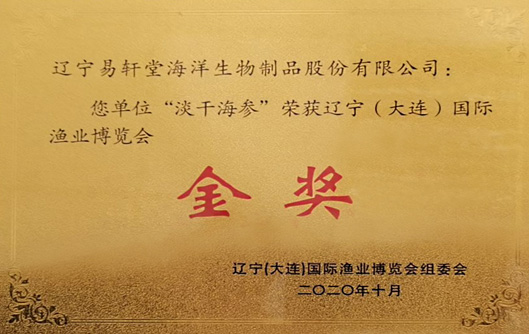 辽宁易轩堂海洋生物制品股份有限公司：
您单位“淡干海参”荣获辽宁（大连）国际
渔业博览会
金奖
辽宁(大连)国际渔业博览会组委会
二〇二〇年十月